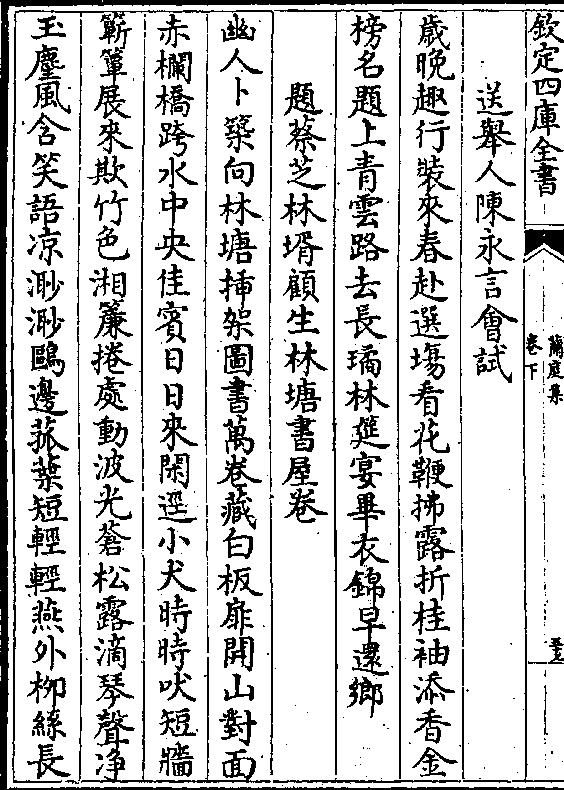 欽定四庫全書
蘭庭集
卷下
送舉人陳永言會試
歲晚趣行裝來春赴選塲看花鞭拂露折桂袖添香金
榜名題上青雲路去長璚林筵宴畢衣錦早還鄉
題蔡芝林壻顧生林塘書屋卷
幽人卜築向林塘揷架圖書萬卷藏白板扉開山對面
赤欄橋跨水中央佳賓日日來閑逕小犬時時吠短牆
簟展來欺竹色湘簾捲處動波光蒼松露滴琴聲净
玉麈風含笑語凉渺渺鷗邊菰葉短輕輕燕外柳絲長